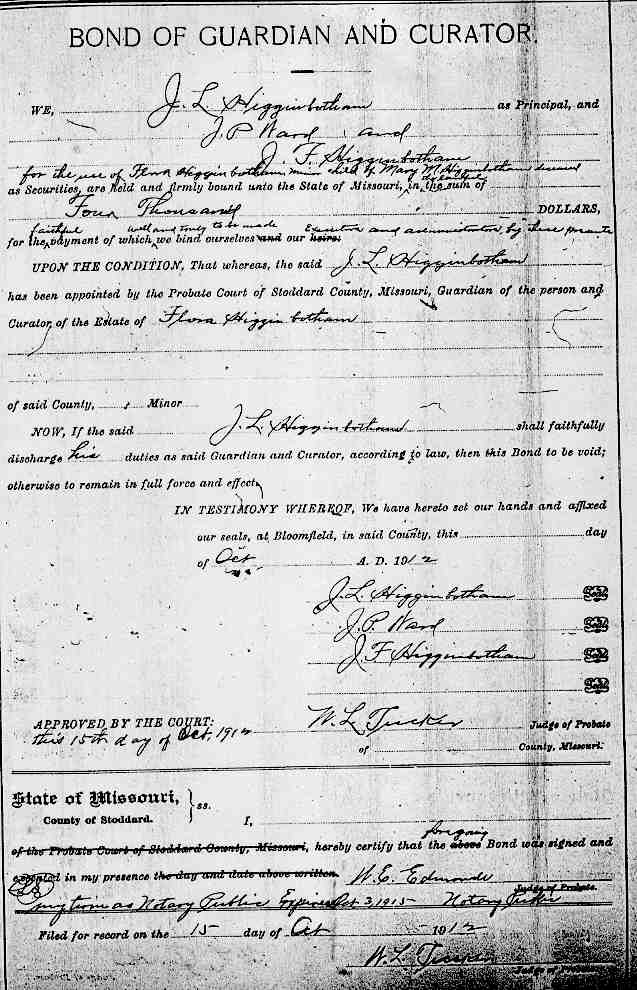 BOND OF GUARDIAN AND CURATOR.
WE, J. L. Higginbotham as Principal, and
J. P. Ward and
J. F. Higginbotham
for the use of Flora Higginbotham minor child of Mary M. Higginbotham deceased
as Securities, are held and firmly bound unto the State of Missouri, in the sum of
Four Thousand DOLLARS,
faithful well and truly to be made Executors and administrators, by these presents
for the payment of which we bind ourselves and our heirs:
UPON THE CONDITION, That whereas, the said J. L. Higginbotham
has been appointed by the Probate Court of Stoddard County, Missouri, Guardian of the person and
Curator of the Estate of Flora Higginbotham
of said County, Minor
NOW, If the said J. L. Higginbotham shall faithfully
discharge his duties as said Guardian and Curator, according to law, then this Bond to be void;
otherwise to remain in full force and effect.
IN TESTIMONY WHEREOF, We have hereto set our hands and affixed
our seals, at Bloomfield, in said County, this day
of Oct A. D. 1912
J. L. Higginbotham Seal
J. P. Ward Seal
J. F. Higginbotham Seal
Seal
APPROVED BY THE COURT: W. L. Tucker Judge of Probate
this 15th day of Oct, 1912 of County, Missouri.
State of Missouri, } ss.
County of Stoddard. I,
foregoing
of the Probate Court of Stoddard County, Missouri, hereby certify that the above Bond was signed and
executed in my presence the day and date above written. W. E. Edmonds
Judge of Probate.
my term as Notary Public Expires Oct 3, 1915 Notary Public
Filed for record on the 15 day of Oct 1912
W. L. Tucker
Judge of Probate